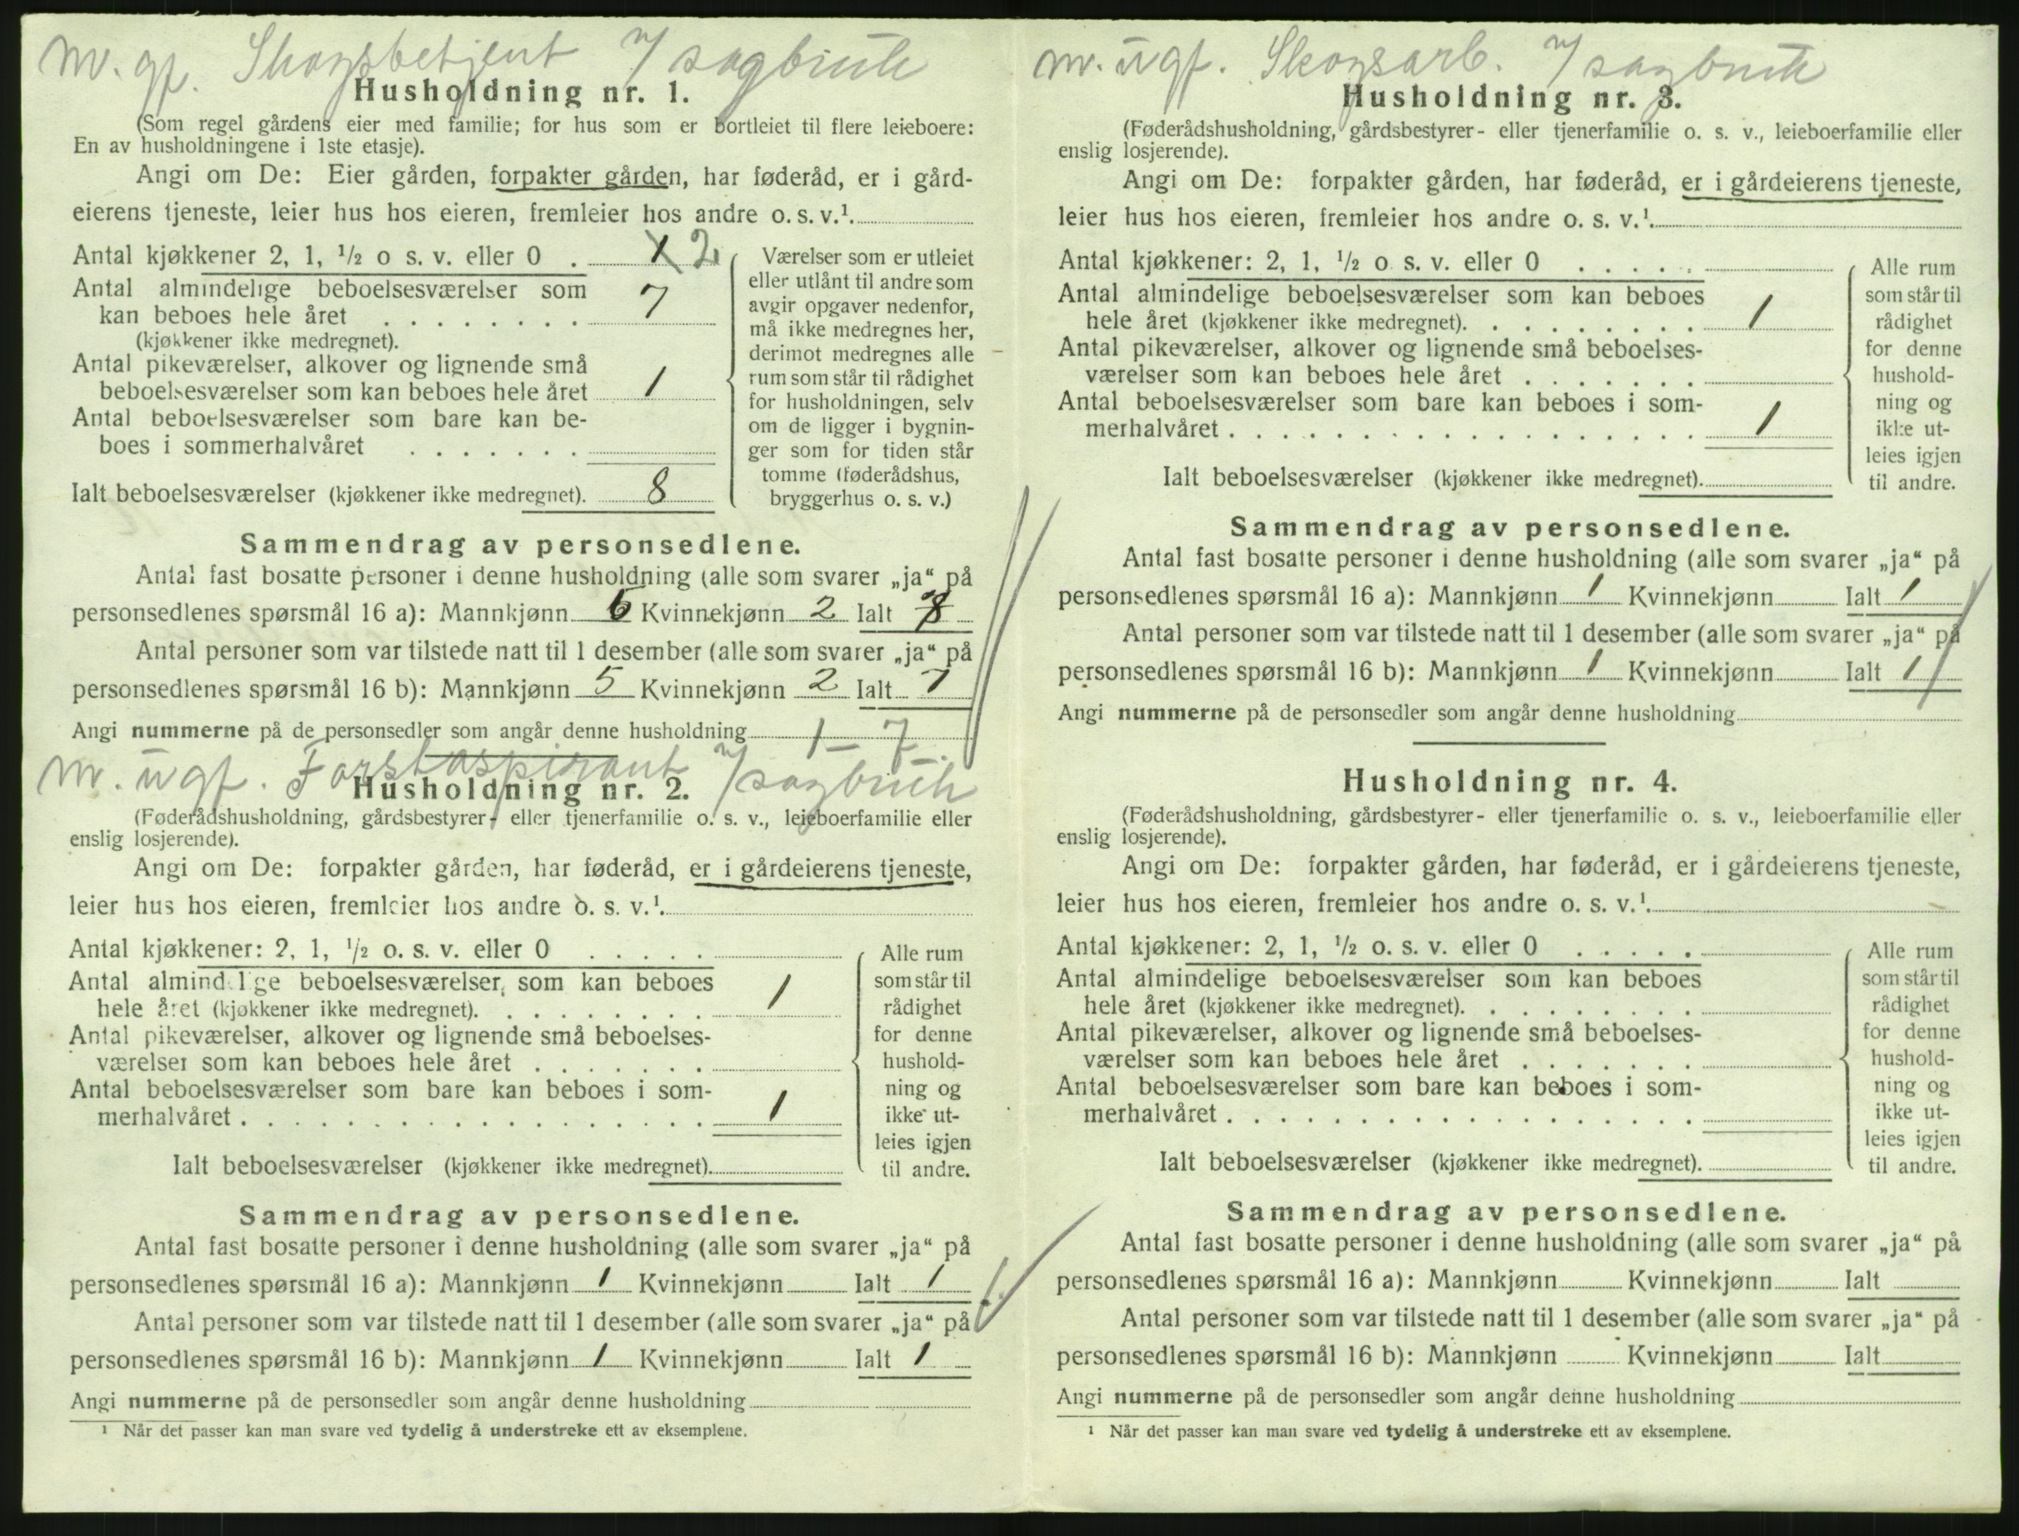 m. gf. Skogsbetjent v/ sagbruk
Husholdning nr. 1.
(Som regel gårdens eier med familie; for hus som er bortleiet til flere leieboere:
En av husholdningene i 1ste etasje).
Angi om De: Eier gården, forpakter gården, har føderåd, er i gård-
eierens tjeneste, leier hus hos eieren, fremleier hos andre o. s. v.¹.
Antal kjøkkener 2, 1, ½ o s. v. eller 0 . 1 2
Antal almindelige beboelsesværelser som
kan beboes hele året . . . . . . . . 7
(kjøkkener ikke medregnet).
Antal pikeværelser, alkover og lignende små
beboelsesværelser som kan beboes hele året 1
Antal beboelsesværelser som bare kan be-
boes i sommerhalvåret . . . . . . .
Ialt beboelsesværelser (kjøkkener ikke medregnet). 8
Værelser som er utleiet
eller utlånt til andre som
avgir opgaver nedenfor,
må ikke medregnes her,
derimot medregnes alle
rum som står til rådighet
for husholdningen, selv
om de ligger i bygnin-
ger som for tiden står
tomme (føderådshus,
bryggerhus o. s. v.)
Sammendrag av personsedlene.
Antal fast bosatte personer i denne husholdning (alle som svarer „ja“ på
personsedlenes spørsmål 16 a): Mannkjønn 6 Kvinnekjønn 2 Ialt 8
Antal personer som var tilstede natt til 1 desember (alle som svarer „ja“ på
personsedlenes spørsmål 16 b): Mannkjønn 5 Kvinnekjønn 2 Ialt 7
Angi nummerne på de personsedler som angår denne husholdning 1 – 7
m. ugf. Forstaspirant v/ sagbruk
Husholdning nr. 2.
(Føderådshusholdning, gårdsbestyrer- eller tjenerfamilie o. s. v., leieboerfamilie eller
enslig losjerende).
Angi om De: forpakter gården, har føderåd, er i gårdeierens tjeneste,
leier hus hos eieren, fremleier hos andre o. s. v.¹.
Antal kjøkkener: 2, 1, ½ o. s. v. eller 0 . . . . .
Antal almindelige beboelsesværelser, som kan beboes
hele året (kjøkkener ikke medregnet). . . . . . . . . 1
Antal pikeværelser, alkover og lignende små beboelses-
værelser som kan beboes hele året . . . . . . .
Antal beboelsesværelser som bare kan beboes i som-
merhalvåret . . . . . . . . . . . . . . . . . . 1
Ialt beboelsesværelser (kjøkkener ikke medregnet).
Alle rum
som står til
rådighet
for denne
hushold-
ning og
ikke ut-
leies igjen
til andre.
Sammendrag av personsedlene.
Antal fast bosatte personer i denne husholdning (alle som svarer „ja“ på
personsedlenes spørsmål 16 a): Mannkjønn 1 Kvinnekjønn Ialt 1
Antal personer som var tilstede natt til 1 desember (alle som svarer „ja“ på
personsedlenes spørsmål 16 b): Mannkjønn 1 Kvinnekjønn Ialt 1
Angi nummerne på de personsedler som angår denne husholdning
¹ Når det passer kan man svare ved tydelig å understreke ett av eksemplene.
m. ugf. Skogsarb. v/ sagbruk
Husholdning nr. 3.
(Føderådshusholdning, gårdsbestyrer- eller tjenerfamilie o. s. v., leieboerfamilie eller
enslig losjerende).
Angi om De: forpakter gården, har føderåd, er i gårdeierens tjeneste,
leier hus hos eieren, fremleier hos andre o. s. v.¹.
Antal kjøkkener: 2, 1, ½ o s. v. eller 0 . . . . .
Antal almindelige beboelsesværelser som kan beboes
hele året (kjøkkener ikke medregnet). . . . . . . . . 1
Antal pikeværelser, alkover og lignende små beboelses-
værelser som kan beboes hele året . . . . . . .
Antal beboelsesværelser som bare kan beboes i som-
merhalvåret . . . . . . . . . . . . . . . . . . 1
Ialt beboelsesværelser (kjøkkener ikke medregnet).
Alle rum
som står til
rådighet
for denne
hushold-
ning og
ikke ut-
leies igjen
til andre.
Sammendrag av personsedlene.
Antal fast bosatte personer i denne husholdning (alle som svarer „ja“ på
personsedlenes spørsmål 16 a): Mannkjønn 1 Kvinnekjønn Ialt 1
Antal personer som var tilstede natt til 1 desember (alle som svarer „ja“ på
personsedlenes spørsmål 16 b): Mannkjønn 1 Kvinnekjønn Ialt 1
Angi nummerne på de personsedler som angår denne husholdning
Husholdning nr. 4.
(Føderådshusholdning, gårdsbestyrer- eller tjenerfamilie o. s. v., leieboerfamilie eller
enslig losjerende).
Angi om De: forpakter gården, har føderåd, er i gårdeierens tjeneste,
leier hus hos eieren, fremleier hos andre o. s. v.¹.
Antal kjøkkener: 2, 1, ½ o. s. v. eller 0 . . . . .
Antal almindelige beboelsesværelser som kan beboes
hele året (kjøkkener ikke medregnet). . . . . . . . .
Antal pikeværelser, alkover og lignende små beboelses-
værelser som kan beboes hele året . . . . . . .
Antal beboelsesværelser som bare kan beboes i som-
merhalvåret . . . . . . . . . . . . . . . . . .
Ialt beboelsesværelser (kjøkkener ikke medregnet).
Alle rum
som står til
rådighet
for denne
hushold-
ning og
ikke ut-
leies igjen
til andre.
Sammendrag av personsedlene.
Antal fast bosatte personer i denne husholdning (alle som svarer „ja“ på
personsedlenes spørsmål 16 a): Mannkjønn Kvinnekjønn Ialt
Antal personer som var tilstede natt til 1 desember (alle som svarer „ja“ på
personsedlenes spørsmål 16 b): Mannkjønn Kvinnekjønn Ialt
Angi nummerne på de personsedler som angår denne husholdning
¹ Når det passer kan man svare ved tydelig å understreke ett av eksemplene.